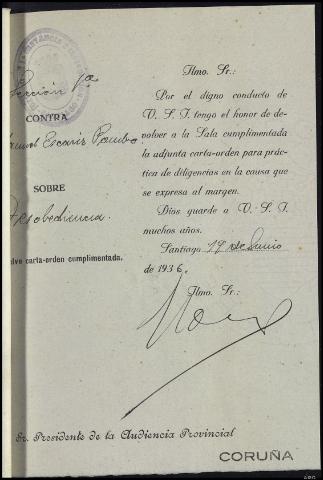 Sección 1ª
CONTRA
Escariz Pombo
SOBRE
Desobediencia.
elve carta-orden cumplimentada.
Ilmo. Sr.:
Por el digno conducto de
V. S. I. tengo el honor de de-
volver a la Sala cumplimentada
la adjunta carta-orden para prác-
tica de diligencias en la causa que
se expresa al margen.
Dios guarde a V. S. I.
muchos años.
Santiago 19 de Junio
de 1936.
Ilmo. Sr.:
Sr. Presidente de la Audiencia Provincial
CORUÑA